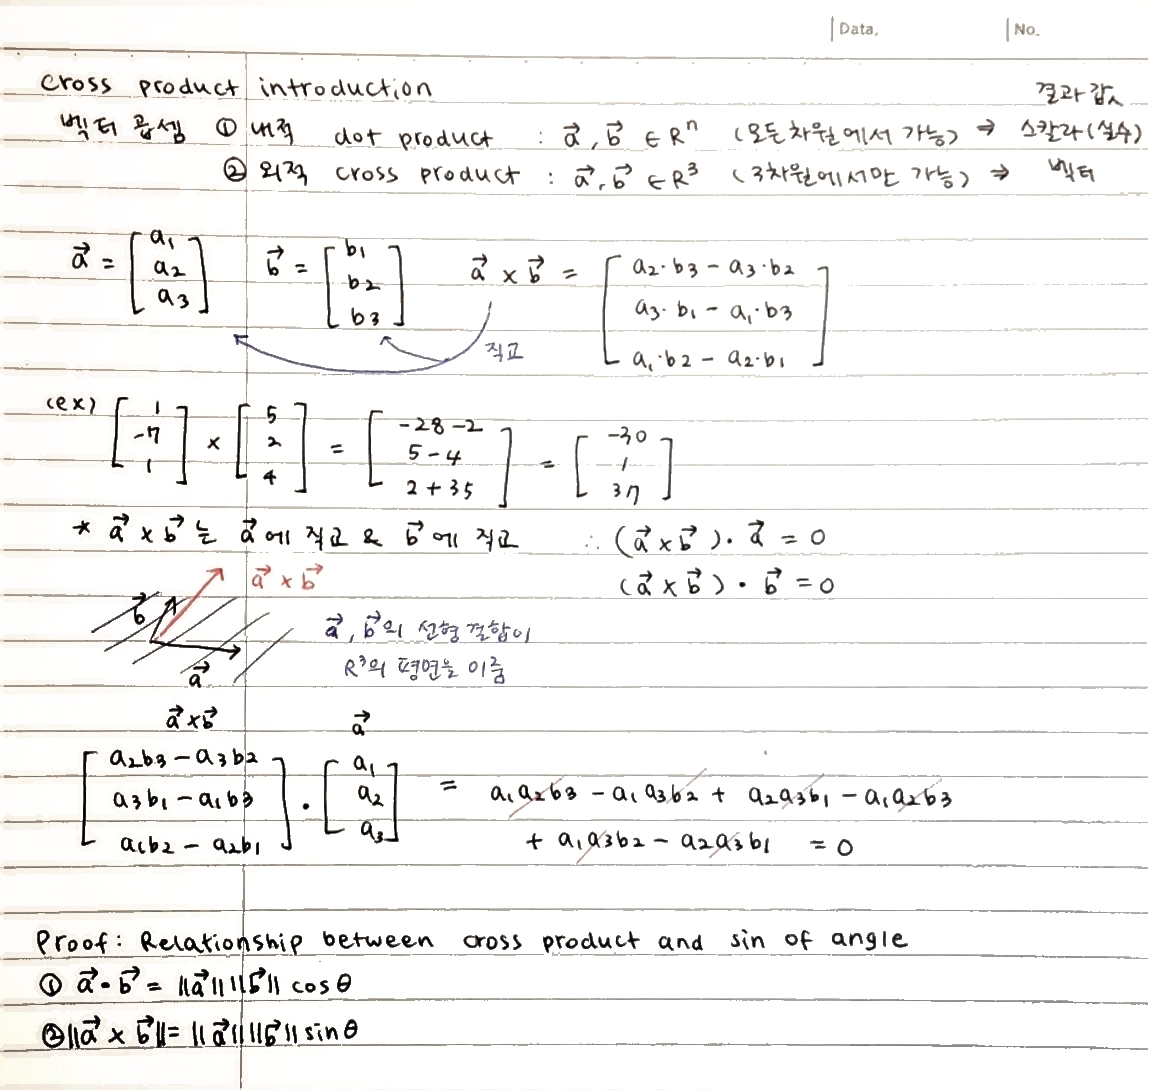 Data.
No.
cross product introduction
결과 값
벡터 곱셈 ① 내적 dot product : a⃗, b⃗ ∈ Rⁿ (모든 차원에서 가능) ⇒ 스칼라(실수)
② 외적 cross product : a⃗, b⃗ ∈ R³ (3차원에서만 가능) ⇒ 벡터
a⃗ = [a₁ a₂ a₃] b⃗ = [b₁ b₂ b₃] a⃗ × b⃗ = [a₂·b₃ - a₃·b₂ a₃·b₁ - a₁·b₃ a₁·b₂ - a₂·b₁]
직교
(ex) [1 -7 1] × [5 2 4] = [-28-2 5-4 2+35] = [-30 1 37]
* a⃗ × b⃗ 는 a⃗ 에 직교 & b⃗ 에 직교 ∴ (a⃗ × b⃗)·a⃗ = 0
(a⃗ × b⃗)·b⃗ = 0
a⃗ × b⃗
b⃗
a⃗
a⃗, b⃗의 선형 결합이
R³의 평면을 이룸
a⃗×b⃗ a⃗
[a₂b₃ - a₃b₂ a₃b₁ - a₁b₃ a₁b₂ - a₂b₁] · [a₁ a₂ a₃] = a₁a₂b₃ - a₁a₃b₂ + a₂a₃b₁ - a₁a₂b₃
+ a₁a₃b₂ - a₂a₃b₁ = 0
Proof: Relationship between cross product and sin of angle
① a⃗·b⃗ = ||a⃗|| ||b⃗|| cosθ
② ||a⃗ × b⃗|| = ||a⃗|| ||b⃗|| sinθ